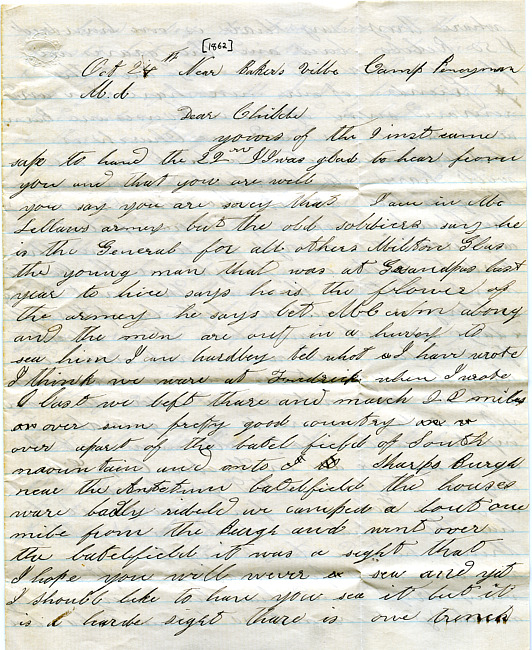 [1862]
Oct 24th Near Bakers ville Camp Penyman
M.d.
Dear Childe
yours of the 1 inst came
safe to hand the 22nd I was glad to hear from
you and that you are well
you say you are sorey that I am in Mc
Lellans armey but the old soldiers say he
is the General for all others Milton Glas
the young man that was at Grandpas last
year to hire says he is the flower of
the armey he says let Mc cum along
and the men are out in a hurey to
sea him I an hardley tel what I have wrote
I think we ware at Fredrick when I wrote
last we left thare and march 18 miles
over sum pretty good country
over apart of the batel field of South
maountain and onto Sharps Burgh
near the Antetum batelfield the houses
ware badly rideled we camped a bout one
mile from the Burgh and went over
the batelfield it was a sight that
I hope you will never sea and yit
I should like to have you sea it but it
is a harde sight thare is one trench